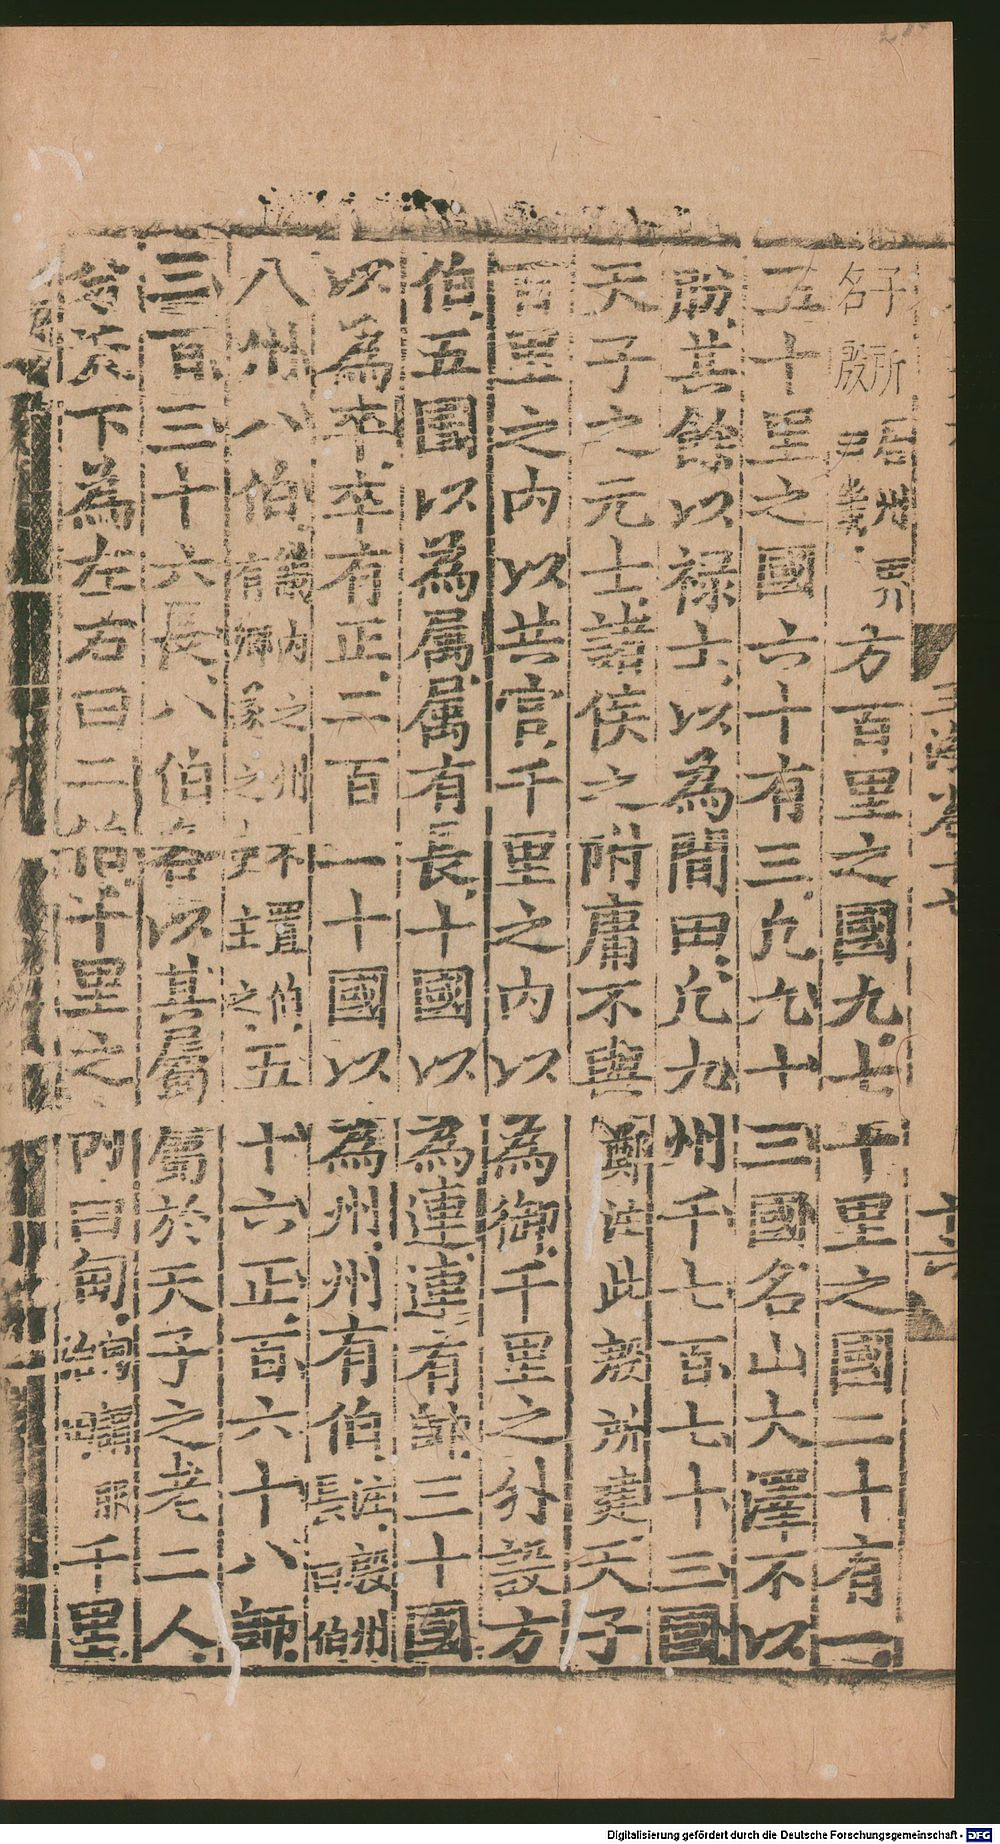 子所居州界
名殷曰畿
方百里之國九七十里之國二十有一
五十里之國六十有三凡九十三國名山大澤不以
朌其餘以祿士以為閒田凡九州千七百七十三國
天子之元士諸侯之附庸不與
鄭注此殷所建
天子
百里之內以共官千里之內以為御千里之外設方
伯五國以為属属有長十國以為連連有帥三十國
以為卒卒有正二百一十國以為州州有伯
注殷州
長曰伯
八州八伯
畿內之州不置伯
有鄉遂之吏主之
五十六正百六十八師
三百三十六長八伯各以其屬屬於天子之老二人
分天下為左右曰二伯千里之內曰甸
千里
王海卷十七
十六
Digitalisierung gefördert durch die Deutsche Forschungsgemeinschaft - DFG